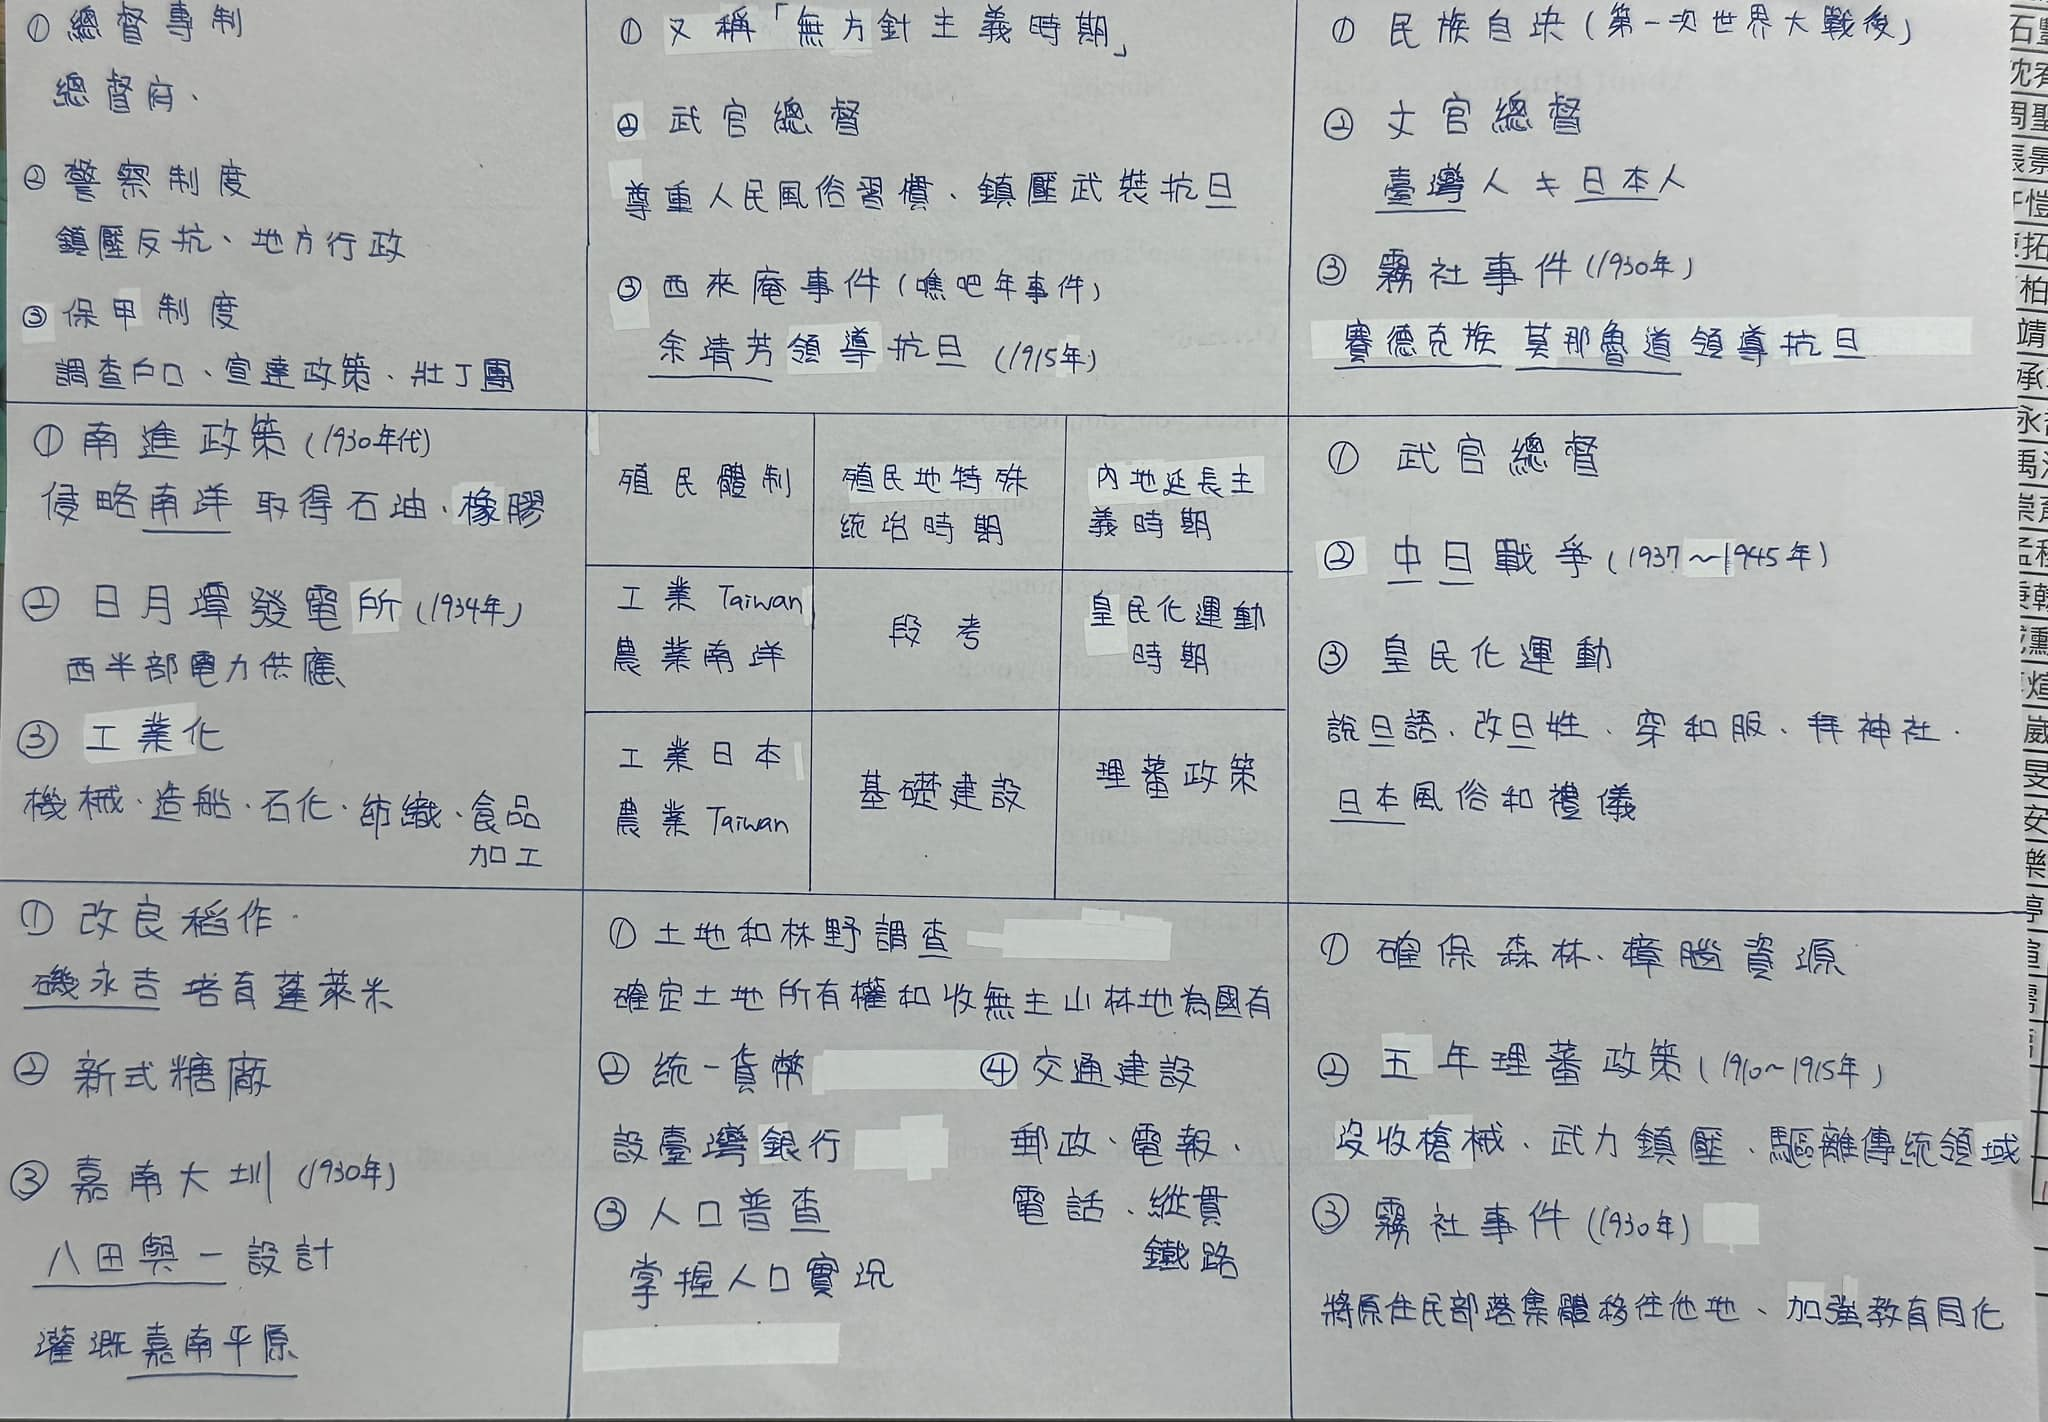 ① 總督專制
總督府、
② 警察制度
鎮壓反抗、地方行政
③ 保甲制度
調查戶口、宣達政策、壯丁團
① 又稱「無方針主義時期」
② 武官總督
尊重人民風俗習慣、鎮壓武裝抗日
③ 西來庵事件(噍吧年事件)
余清芳領導抗日 (1915年)
① 民族自決(第一次世界大戰後)
② 文官總督
臺灣人 ≠ 日本人
③ 霧社事件(1930年)
賽德克族 莫那魯道領導抗日
① 南進政策(1930年代)
侵略南洋 取得石油、橡膠
② 日月潭發電所(1934年)
西半部電力供應、
③ 工業化
機械、造船、石化、紡織、食品
加工
殖民體制
殖民地特殊
統治時期
內地延長主
義時期
工業Taiwan
農業南洋
段考
皇民化運動
時期
工業日本
農業Taiwan
基礎建設
理蕃政策
① 武官總督
② 中日戰爭(1937～1945年)
③ 皇民化運動
說日語、改日姓、穿和服、拜神社、
日本風俗和禮儀
① 改良稻作
磯永吉培育蓬萊米
② 新式糖廠
③ 嘉南大圳(1930年)
八田與一設計
灌溉嘉南平原
① 土地和林野調查
確定土地所有權和收無主山林地為國有
② 統一貨幣
設臺灣銀行
③ 人口普查
掌握人口實況
④ 交通建設
郵政、電報、
電話、縱貫
鐵路
① 確保森林、樟腦資源
② 五年理蕃政策(1910～1915年)
沒收槍械、武力鎮壓、驅離傳統領域
③ 霧社事件(1930年)
將原住民部落集體移往他地、加強教育同化